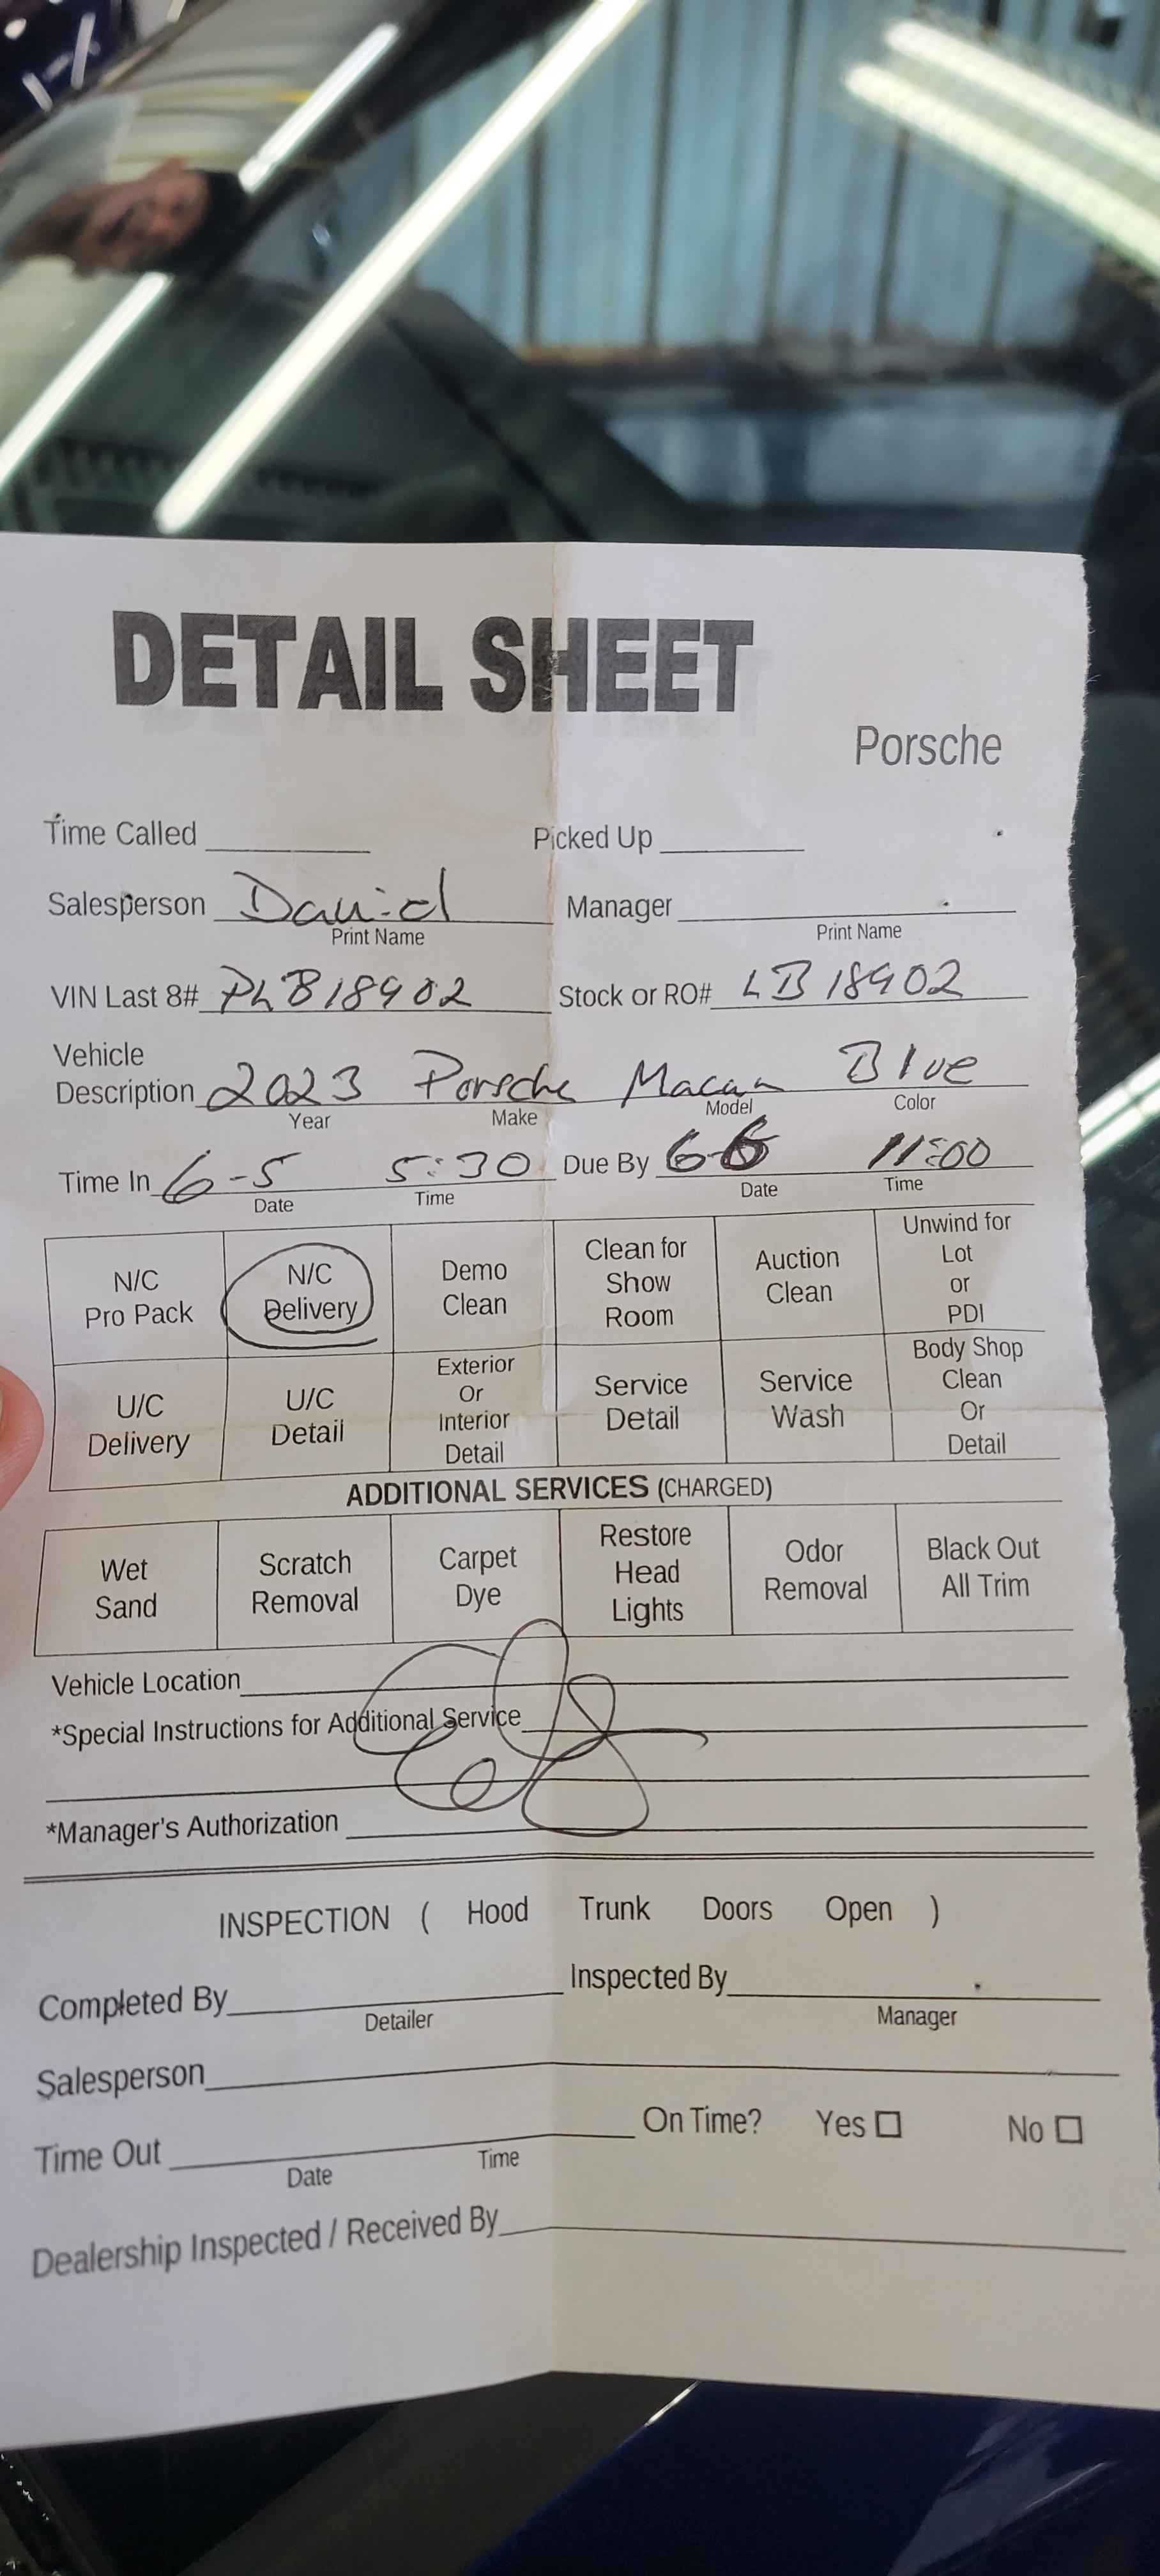 DETAIL SHEET
Porsche
Time Called Picked Up
Salesperson Daniel Manager
Print Name Print Name
VIN Last 8# PLB18902 Stock or RO# LB18902
Vehicle
Description 2023 Porsche Macan Blue
Year Make Model Color
Time In 6-5 5:30 Due By 6-6 11:00
Date Time Date Time
N/C Pro Pack N/C Delivery Demo Clean Clean for Show Room Auction Clean Unwind for Lot or PDI
U/C Delivery U/C Detail Exterior Or Interior Detail Service Detail Service Wash Body Shop Clean Or Detail
ADDITIONAL SERVICES (CHARGED)
Wet Sand Scratch Removal Carpet Dye Restore Head Lights Odor Removal Black Out All Trim
Vehicle Location
*Special Instructions for Additional Service
*Manager's Authorization
INSPECTION ( Hood Trunk Doors Open )
Completed By Inspected By
Detailer Manager
Salesperson
Time Out On Time? Yes No
Date Time
Dealership Inspected / Received By